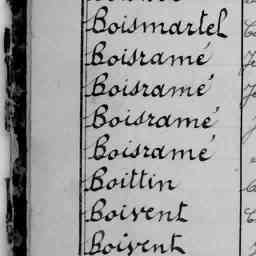 Boismartel
Boisramé
Boisramé
Boisramé
Boisramé
Boittin
Boivent
Boivent